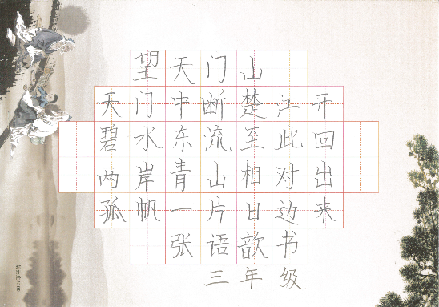 望天门山
天门中断楚江开
碧水东流至此回
两岸青山相对出
孤帆一片日边来
张语歆书
三年级